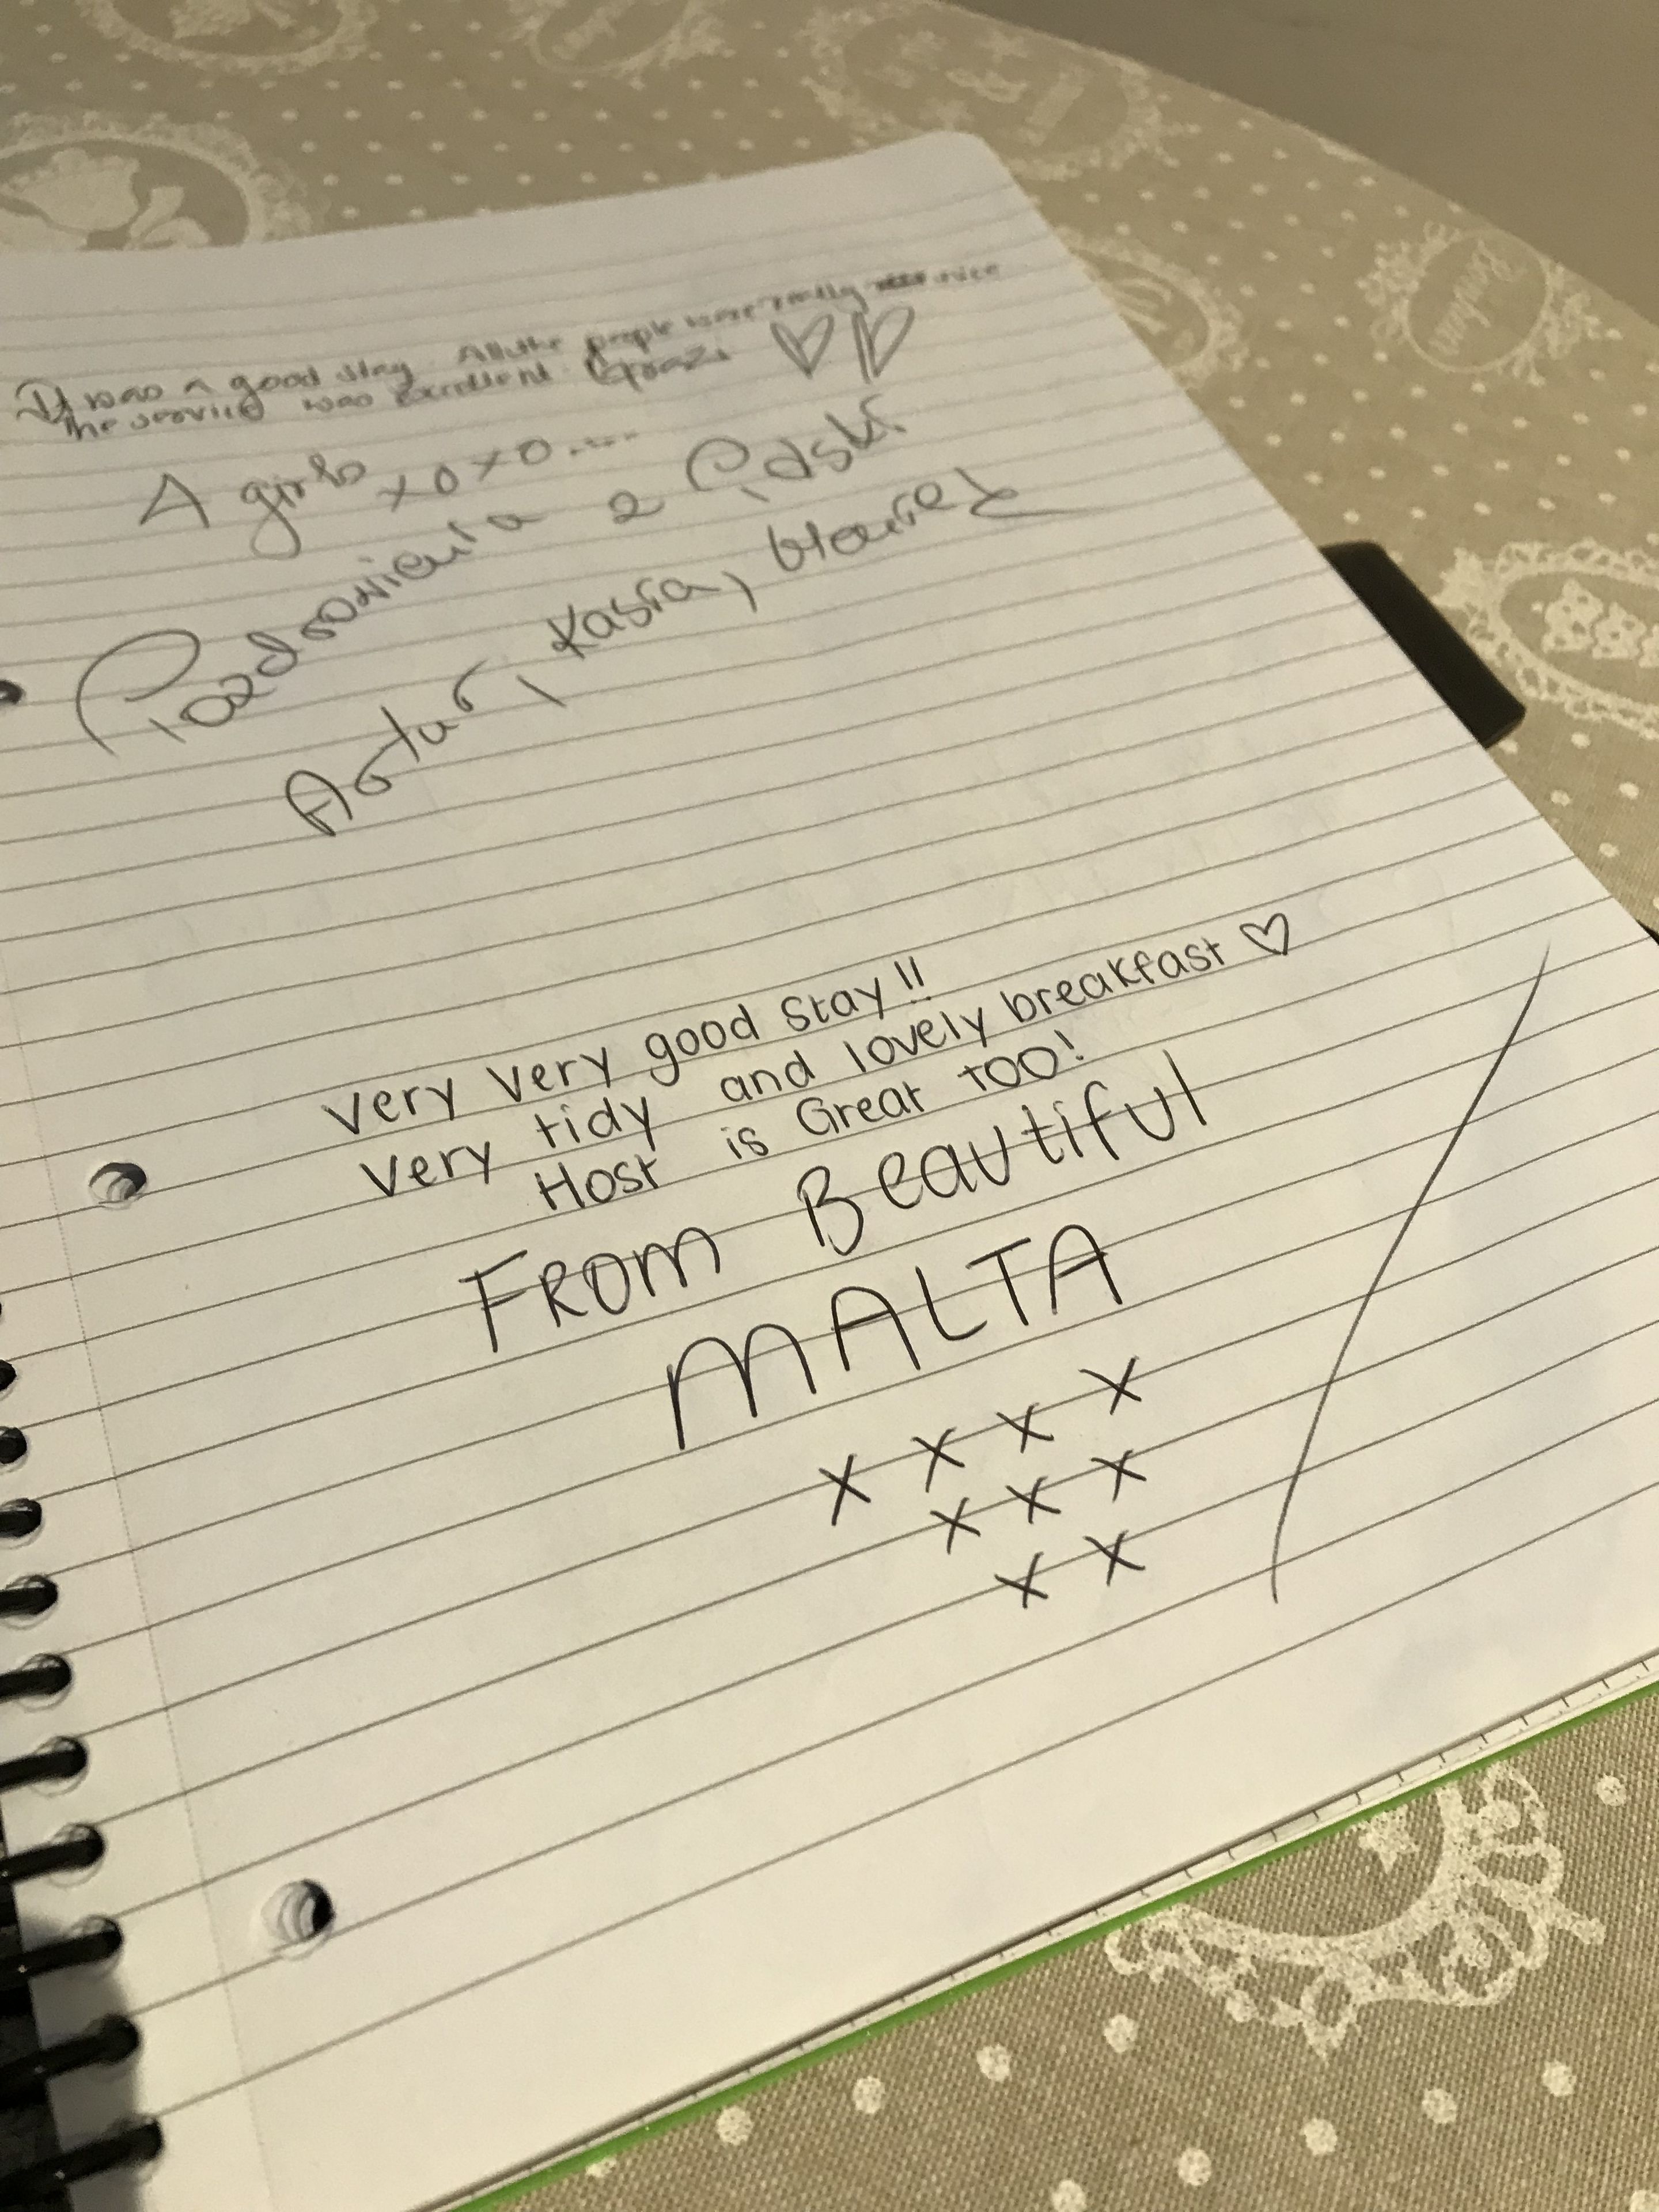 It was a good stay. All the people were really nice
the service was excellent. Grazi
4 girls xoxo....
Pozdrowienia z Polski
Artur, Kasia,
very very good stay!!
very tidy and lovely breakfast ♡
Host is Great too!
FROM Beautiful
MALTA
x x x x
x x x
x x